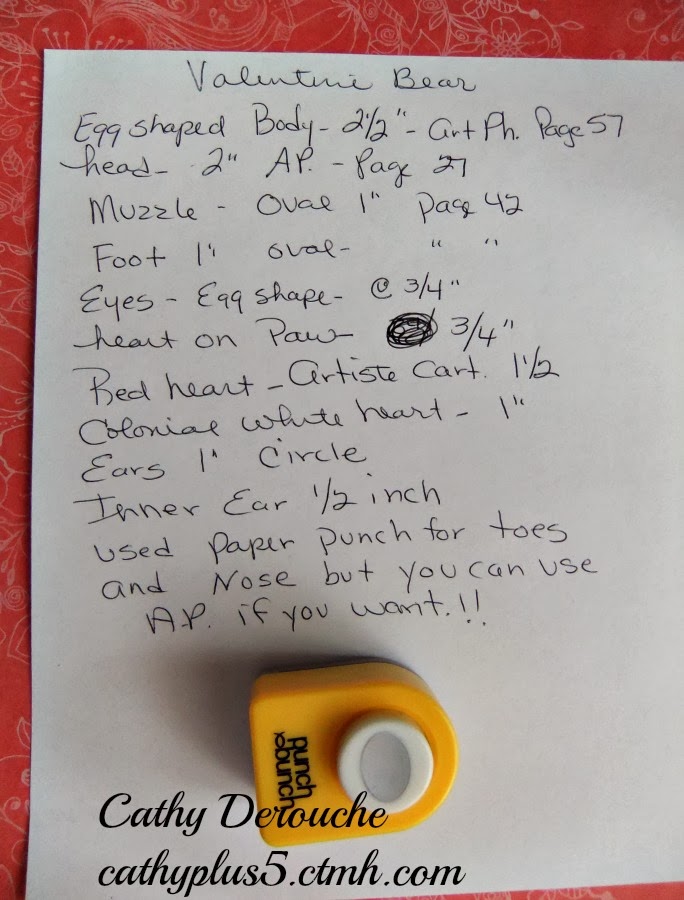 Valentine Bear
Egg shaped Body - 2 1/2" - Art Ph. Page 57
head - 2" AP. - Page 27
Muzzle - Oval 1" page 42
Foot 1" oval - " "
Eyes - Egg shape - @ 3/4"
heart on Paw - 3/4"
Red heart - Artiste Cart. 1 1/2
Colonial White heart - 1"
Ears 1" Circle
Inner Ear 1/2 inch
used paper punch for toes
and Nose but you can use
A.P. if you want.!!
punch
bunch
Cathy Derouche
cathyplus5.ctmh.com